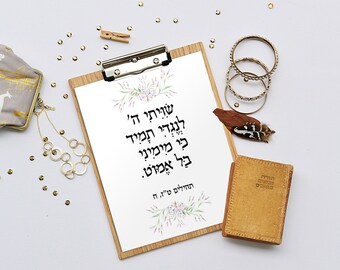 שִׁוִּיתִי ה'
לְנֶגְדִּי תָמִיד
כִּי מִימִינִי
בַּל אֶמּוֹט.
תהילים ט"ז, ח